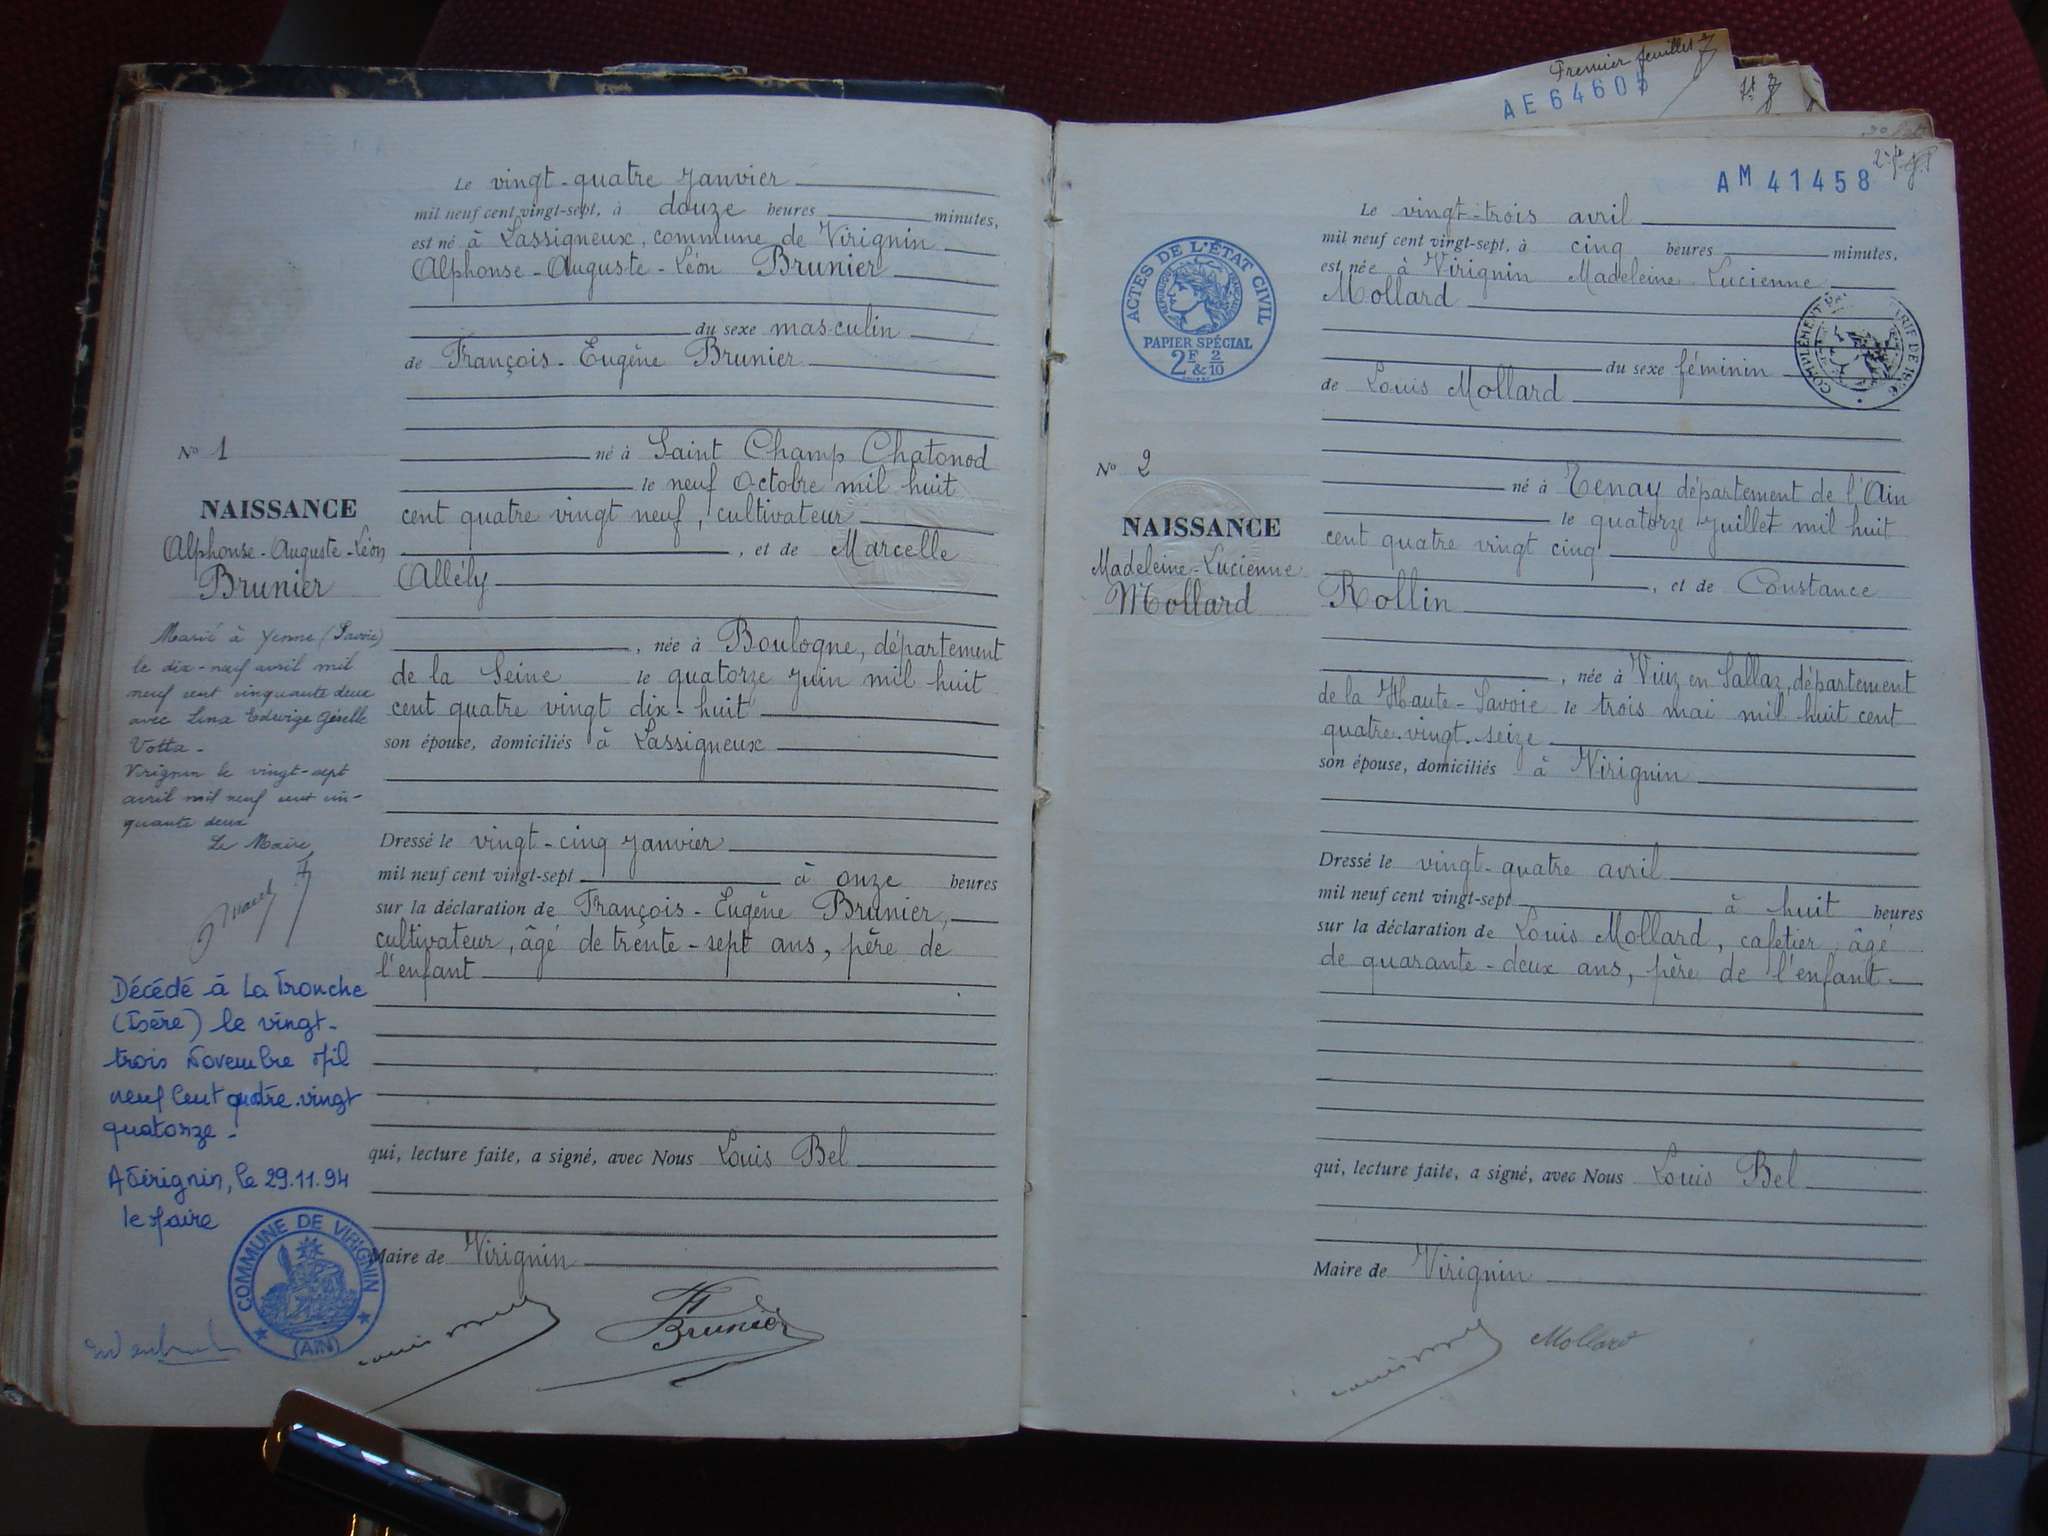 Le vingt-quatre Janvier
mil neuf cent vingt-sept, à douze heures minutes,
est né à Lassigneux, commune de Virignin
Alphonse-Auguste-Léon Brunier
du sexe masculin
de François-Eugène Brunier
né à Saint Champ Chatonod
le neuf Octobre mil huit
cent quatre vingt neuf, cultivateur
, et de Marcelle
Allély
, née à Boulogne, département
de la Seine le quatorze Juin mil huit
cent quatre vingt dix-huit
son épouse, domiciliés à Lassigneux
Dressé le vingt-cinq Janvier
mil neuf cent vingt-sept à onze heures
sur la déclaration de François-Eugène Brunier,
cultivateur, âgé de trente-sept ans, père de
l'enfant
qui, lecture faite, a signé, avec Nous Louis Bel
Maire de Virignin
Brunier
No 1
NAISSANCE
Alphonse-Auguste-Léon
Brunier
Marié à Yenne (Savoie)
le dix-neuf avril mil
neuf cent cinquante deux
avec Lina Edwige Gisèlle
Votta-
Virignin le vingt-sept
avril mil neuf cent cin-
quante deux
Le Maire,
Décédé à La Tronche
(Isère) le vingt-
trois Novembre Mil
neuf Cent quatre-vingt
quatorze-
A Virignin, le 29.11.94
le Maire
COMMUNE DE VIRIGNIN
(AIN)
Premier feuillet
AE 64605
AM 41458
Le vingt-trois avril
mil neuf cent vingt-sept, à cinq heures minutes,
est née à Virignin Madeleine Lucienne
Mollard
du sexe féminin
de Louis Mollard
né à Tenay département de l'Ain
le quatorze Juillet mil huit
cent quatre vingt cinq
, et de Constance
Rollin
, née à Viuz en Sallaz, département
de la Haute-Savoie le trois mai mil huit cent
quatre-vingt-seize
son épouse, domiciliés à Virignin
Dressé le vingt-quatre avril
mil neuf cent vingt-sept à huit heures
sur la déclaration de Louis Mollard, cafetier, âgé
de quarante-deux ans, père de l'enfant
qui, lecture faite, a signé, avec Nous Louis Bel
Maire de Virignin
Mollard
No 2
NAISSANCE
Madeleine-Lucienne
Mollard
ACTES DE L'ÉTAT CIVIL
RÉPUBLIQUE FRANÇAISE
PAPIER SPÉCIAL
2F & 2/10
COMPLÉMENT DE